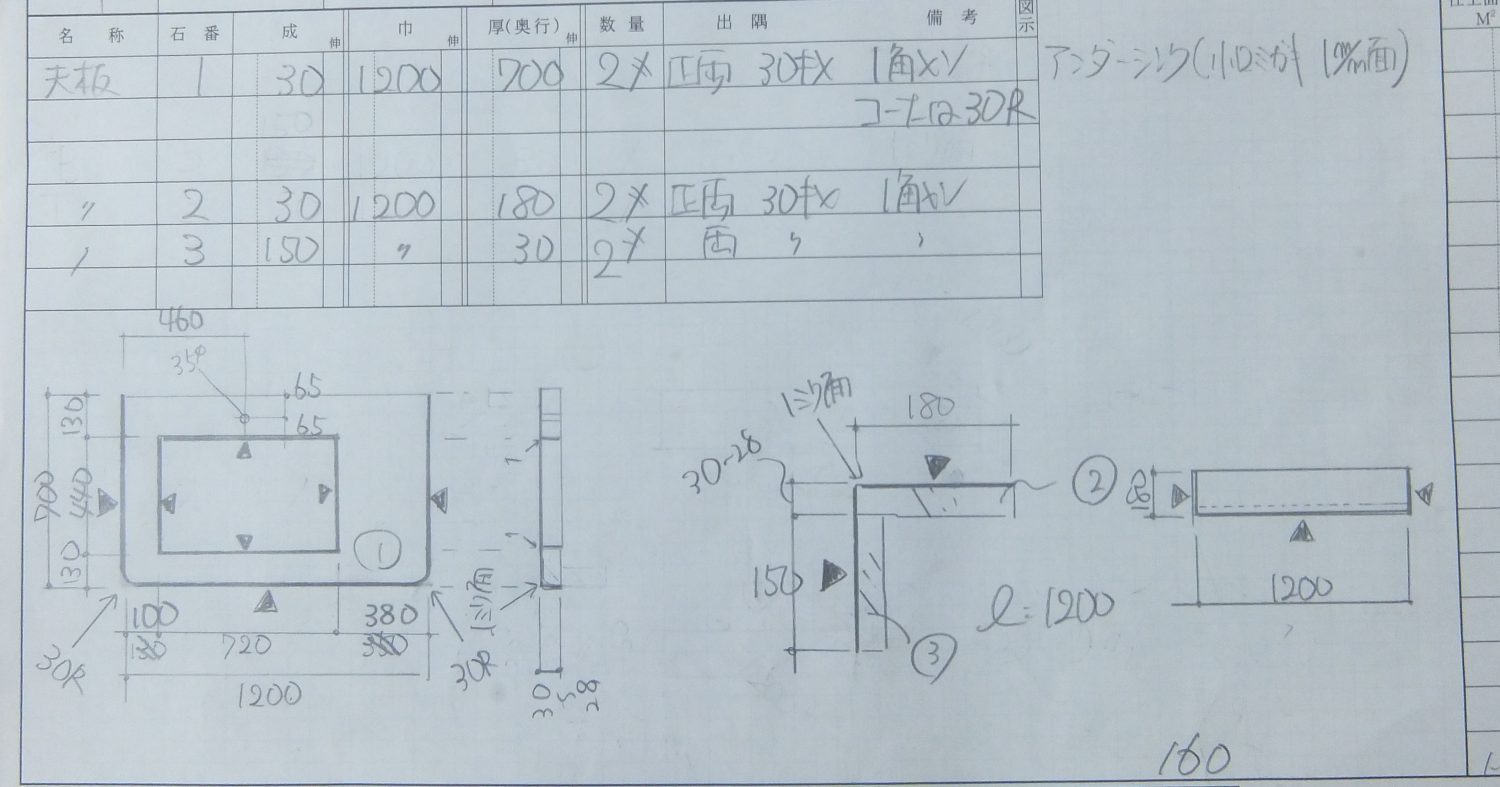 名称 石番 成 伸 巾 伸 厚(奥行) 伸 数量 出隅 備考 図示
M²
天板 1 30 1200 700 2ケ 正両 30 1角
アンダーシンク(小口ミガキ 1m/m面)
コーナーは30R
〃 2 30 1200 180 2ケ 正両 30 1角
〃 3 150 〃 30 2ケ 両 〃 〃
460
35φ
65
65
130
440
130
700
①
100 380
720
1200
30R
30R
1ミリ面
1
1
30
28
1ミリ面
180
30~28
150
②
③
l=1200
1200
160